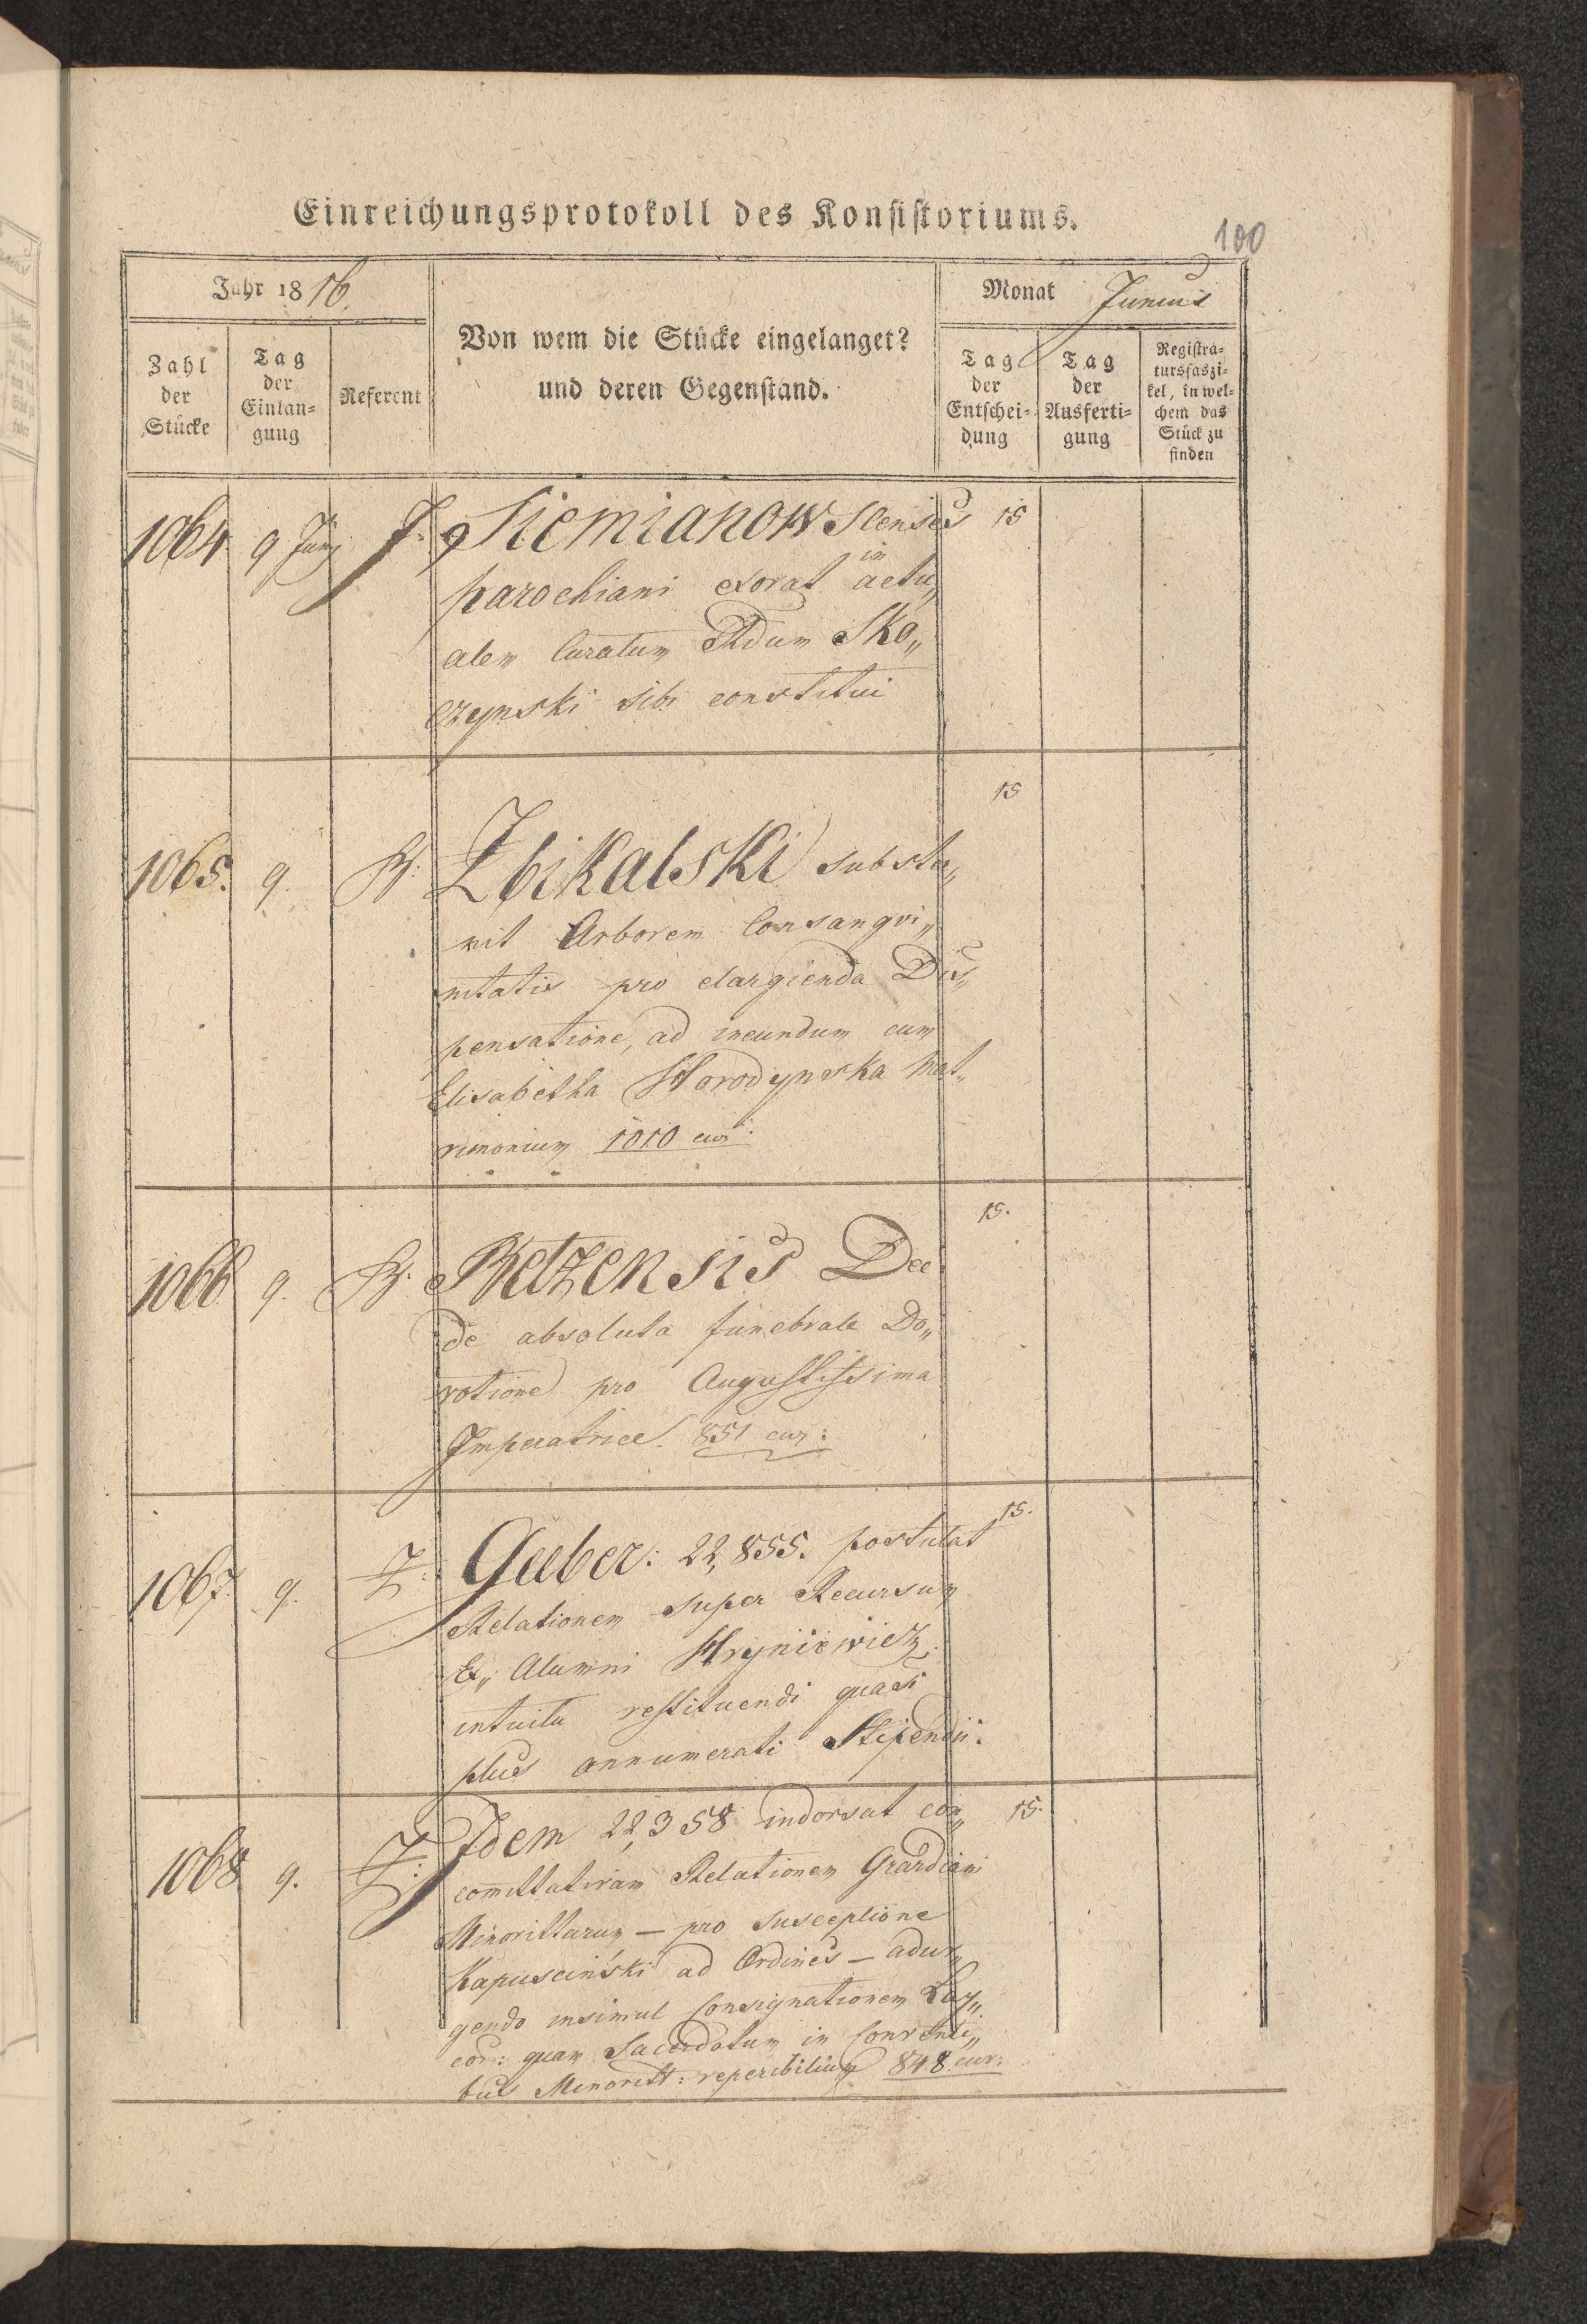 Einreichungsprotokoll des Konsistoriums.
100
Jahr 1816.
Monat Junius
Zahl der Stücke
Tag der Einlangung
Referent
Von wem die Stücke eingelanget?
und deren Gegenstand.
Tag der Entscheidung
Tag der Ausfertigung
Registratursfaszikel, in welchem das Stück zu finden
1064 9 Junj J. Siemianowscenses 15
parochiani exorat in actu„
alem Curatum Rdum Sko„
czynski sibi constitui
15
1065. 9. Zbikalski subster„
nit Arborem Consangvi„
nitatis pro elargienda Dis„
pensatione, ad ineundum cum
Elisabetha Horodynska Mat„
rimonium 1010 cur:
15.
1066 9. Retzensis Dec
de absoluta funebrale Do„
votione pro Augustissima
Imperatrice. 851 cur:
15.
1067. 9. Z. Guber: 22,855. postulat
Relationem super Recursum
Ex„ Alumni Hryniewicz,
intuitu restituendi quasi
plus annumerati Stipendii.
1068 9. Z: Idem 22,358 indorsat con„ 15.
comittativam Relationem Grardiani
Minorittarum — pro susceptione
Kapusciński ad Ordines — adur„
gendo insimul Consignationem Lay„
cor: quam Sacerdotum in Conventi„
bus Minoritt: reperibilium 848 cur: